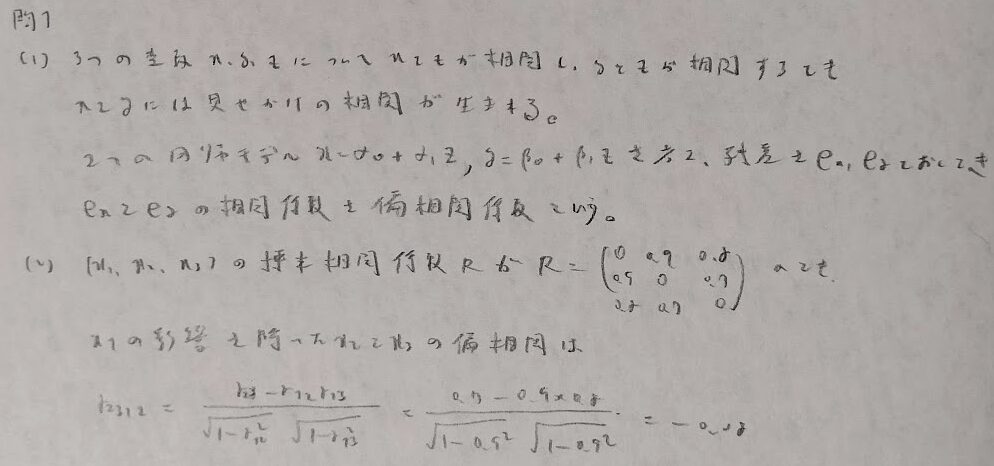 問1
(1) 3つの変数 x, y, z について xとzが相関し、yとzが相関するとき
xとyには見せかけの相関が生まれる。
2つの回帰モデル x=α₀+α₁z, y=β₀+β₁z を考え、残差を eₓ, e_y とおいたとき
eₓとe_yの相関係数を偏相関係数という。
(2) (x₁, x₂, x₃) の標本相関行列 R が R = (0 0.9 0.8 / 0.9 0 0.7 / 0.8 0.7 0) のとき
x₁の影響を除いたx₂とx₃の偏相関は
= (r₂₃ − r₁₂r₁₃) / (√(1−r₁₂²) √(1−r₁₃²)) = (0.7 − 0.9×0.8) / (√(1−0.9²) √(1−0.9²)) =